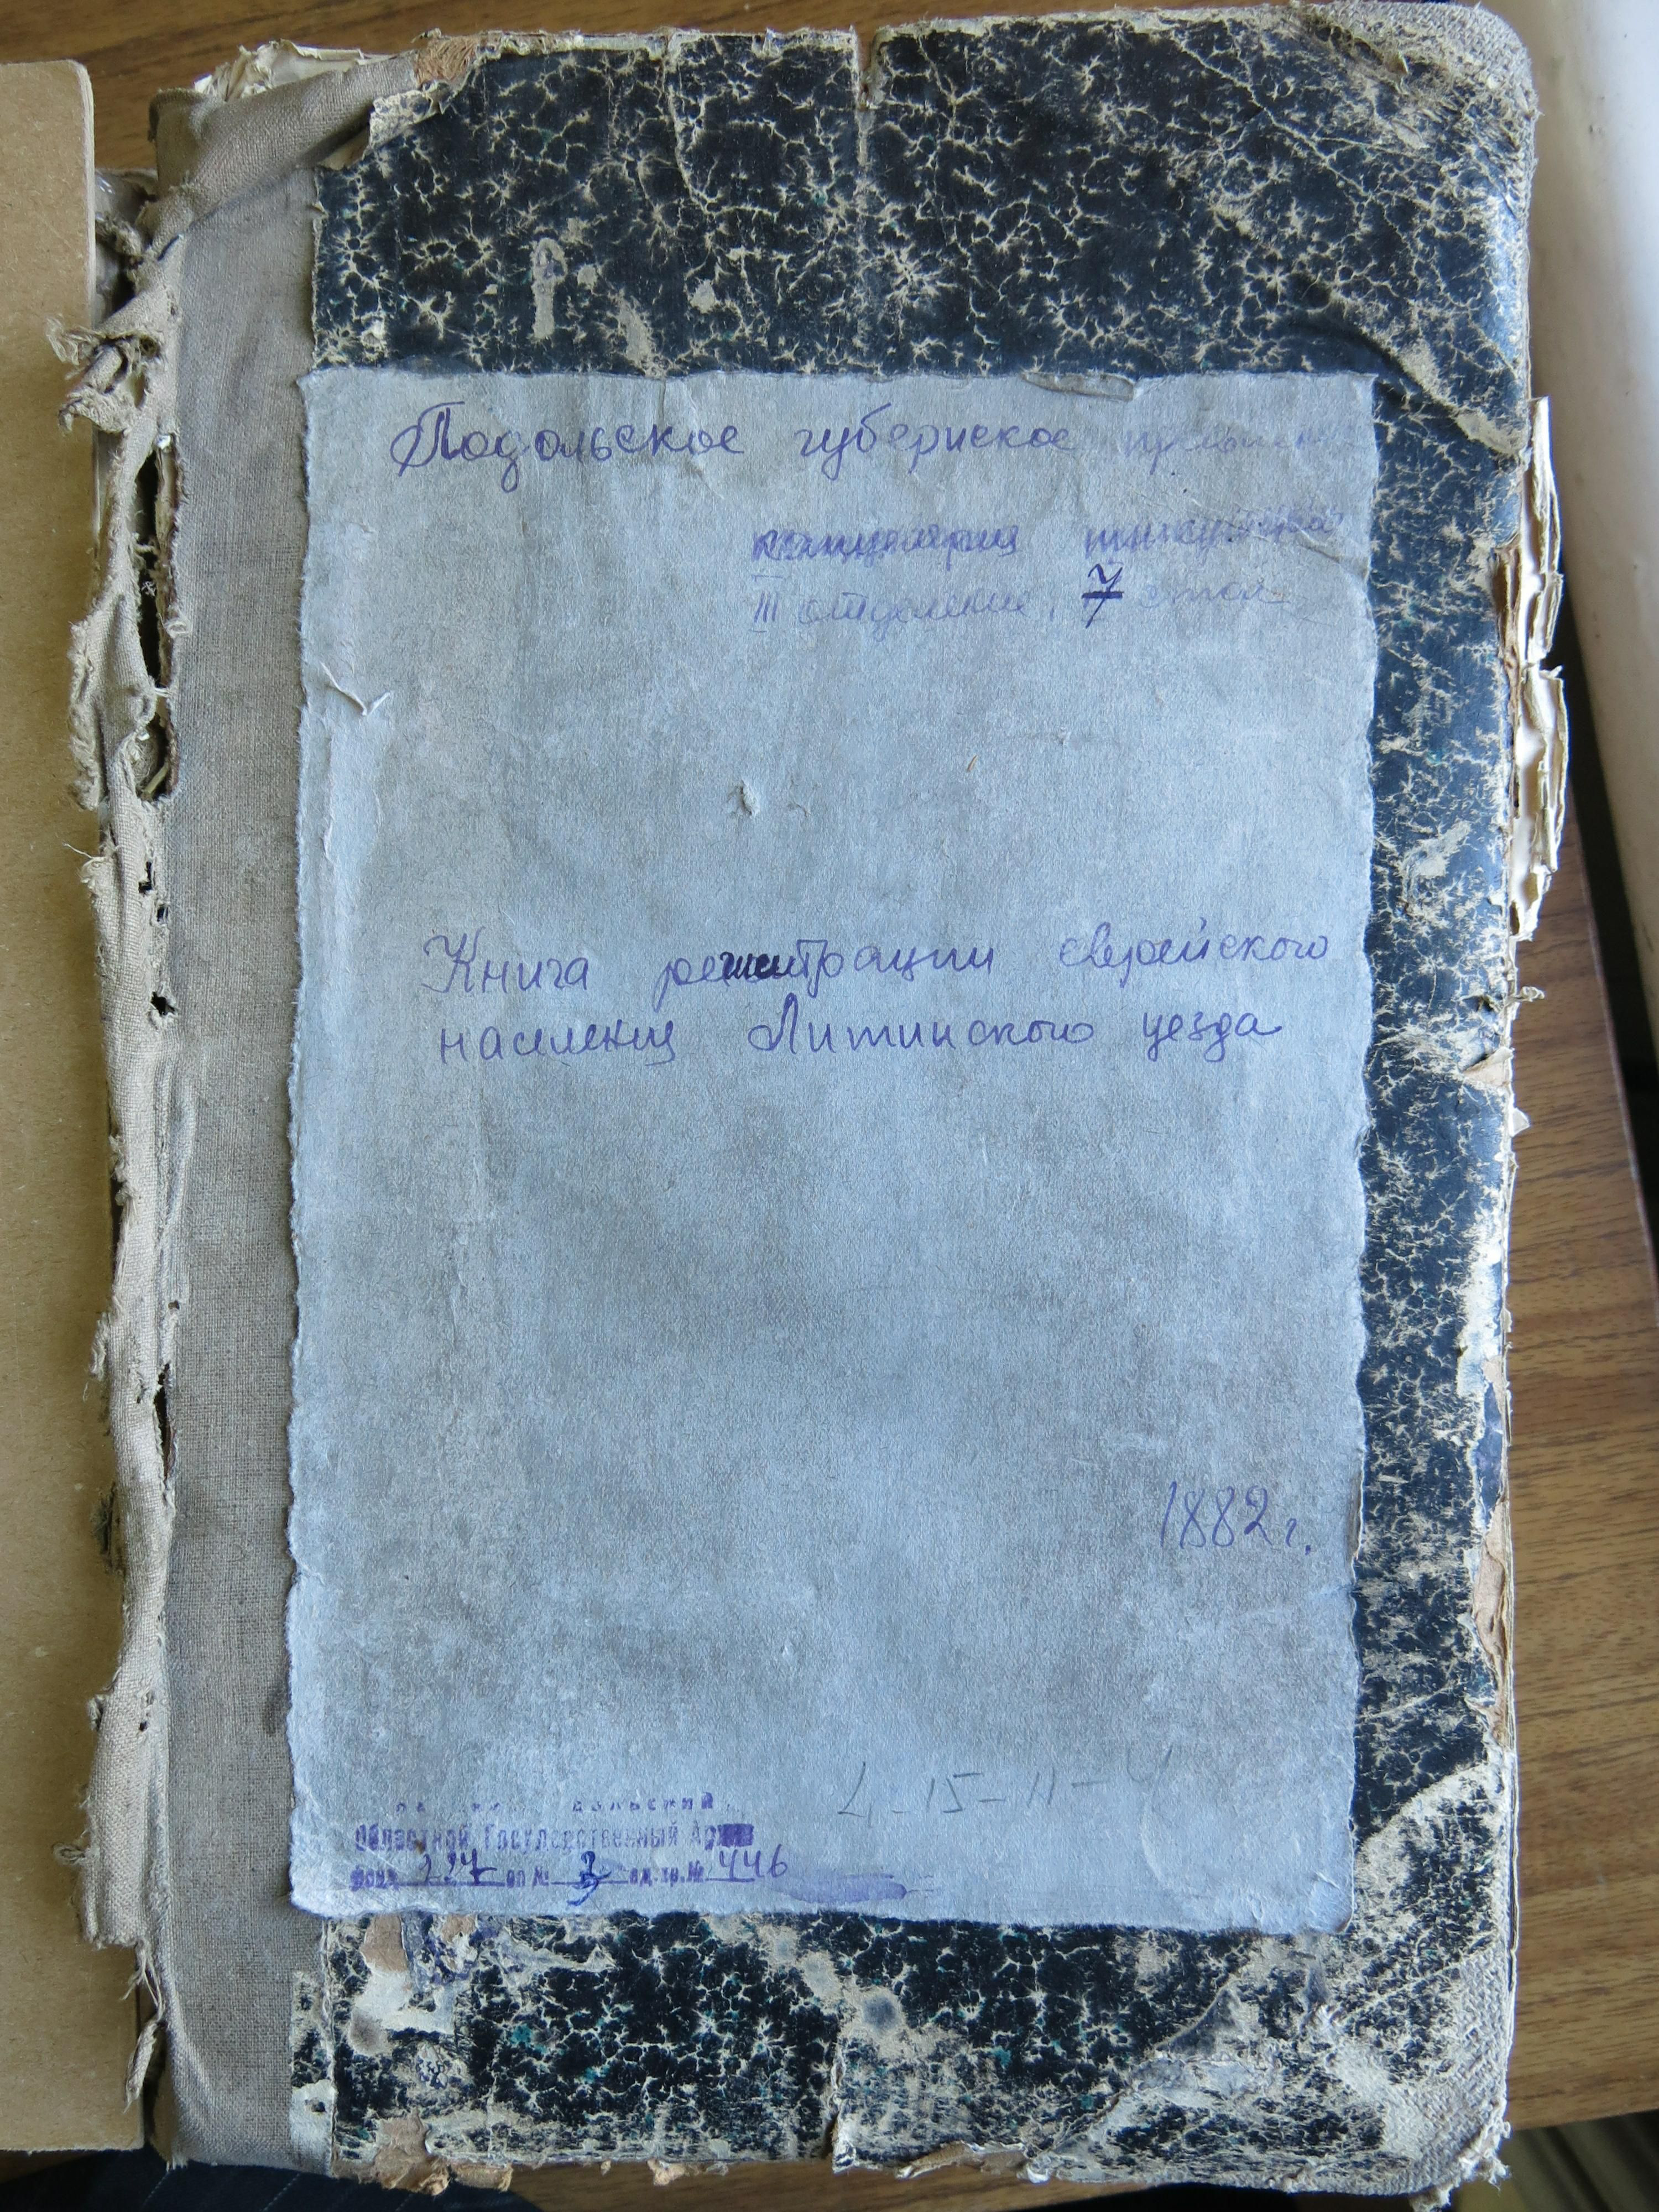 Подольское губернское
III отделение, 7 стол
Книга регистрации еврейского
населения Литинского уезда
1882 г.
4-15-11-4
Областной Государственный Архив
фонд 227 оп № 3 ед.хр.№ 446